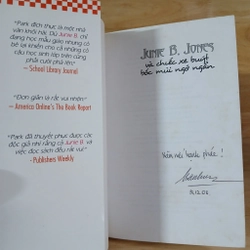 "Park đích thực là một nhà
văn khôi hài. Dù Junie B. chỉ
đang học mẫu giáo nhưng cô
bé lại khiến cho cả những cô
cậu học sinh lớn hơn cũng phải
cười phá lên!"
— School Library Journal
"Đơn giản là rất vui nhộn!"
— America Online's The Book Report
"Park đã thuyết phục được các
độc giả nhí rằng cô Junie B. và
việc đọc sách đều rất vui!"
-Publishers Weekly
Junie B. Jones
và chiếc xe buýt
bốc mùi ngớ ngẩn